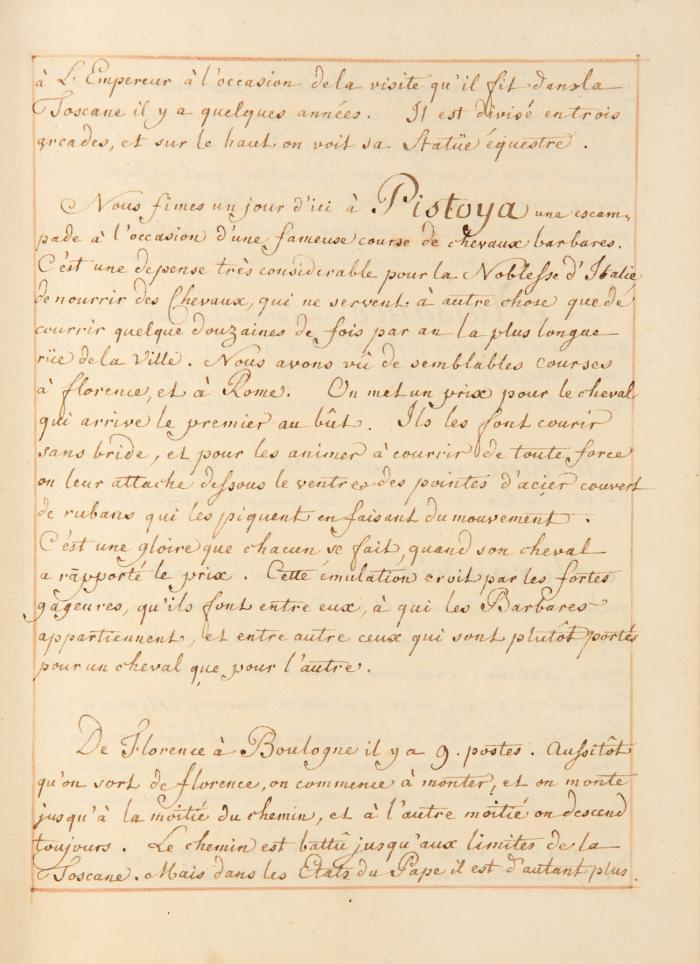 à L'Empereur à l'occasion de la visite qu'il fit dans la
Toscane il y a quelques années. Il est divisé en trois
arcades, et sur le haut on voit sa Statüe équestre.
Nous fimes un jour d'ici à Pistoya une escam,,
pade à l'occasion d'une fameuse course de chevaux barbares.
C'est une depense très considerable pour la Noblesse d'Italie
de nourrir des Chevaux, qui ne servent à autre chose que de
courrir quelque douzaines de fois par an la plus longue
rüe de la Ville. Nous avons vû de semblables courses
à florence, et à Rome. On met un prix pour le cheval
qui arrive le premier au bût. Ils les font courir
sans bride, et pour les animer à courrir de toute force
on leur attache dessous le ventre des pointes d'acier couvert
de rubans qui les piquent en faisant du mouvement.
C'est une gloire que chacun se fait, quand son cheval
a rapporté le prix. Cette émulation croit par les fortes
gâgeures, qu'ils font entre eux, à qui les Barbares
appartiennent, et entre autre ceux qui sont plutôt portés
pour un cheval que pour l'autre.
De Florence à Boulogne il y a 9. postes. Aussitôt
qu'on sort de florence, on commence à monter, et on monte
jusqu'à la moitié du chemin, et à l'autre moitié on descend
toujours. Le chemin est battû jusqu'aux limites de la
Toscane. Mais dans les Etats du Pape il est d'autant plus